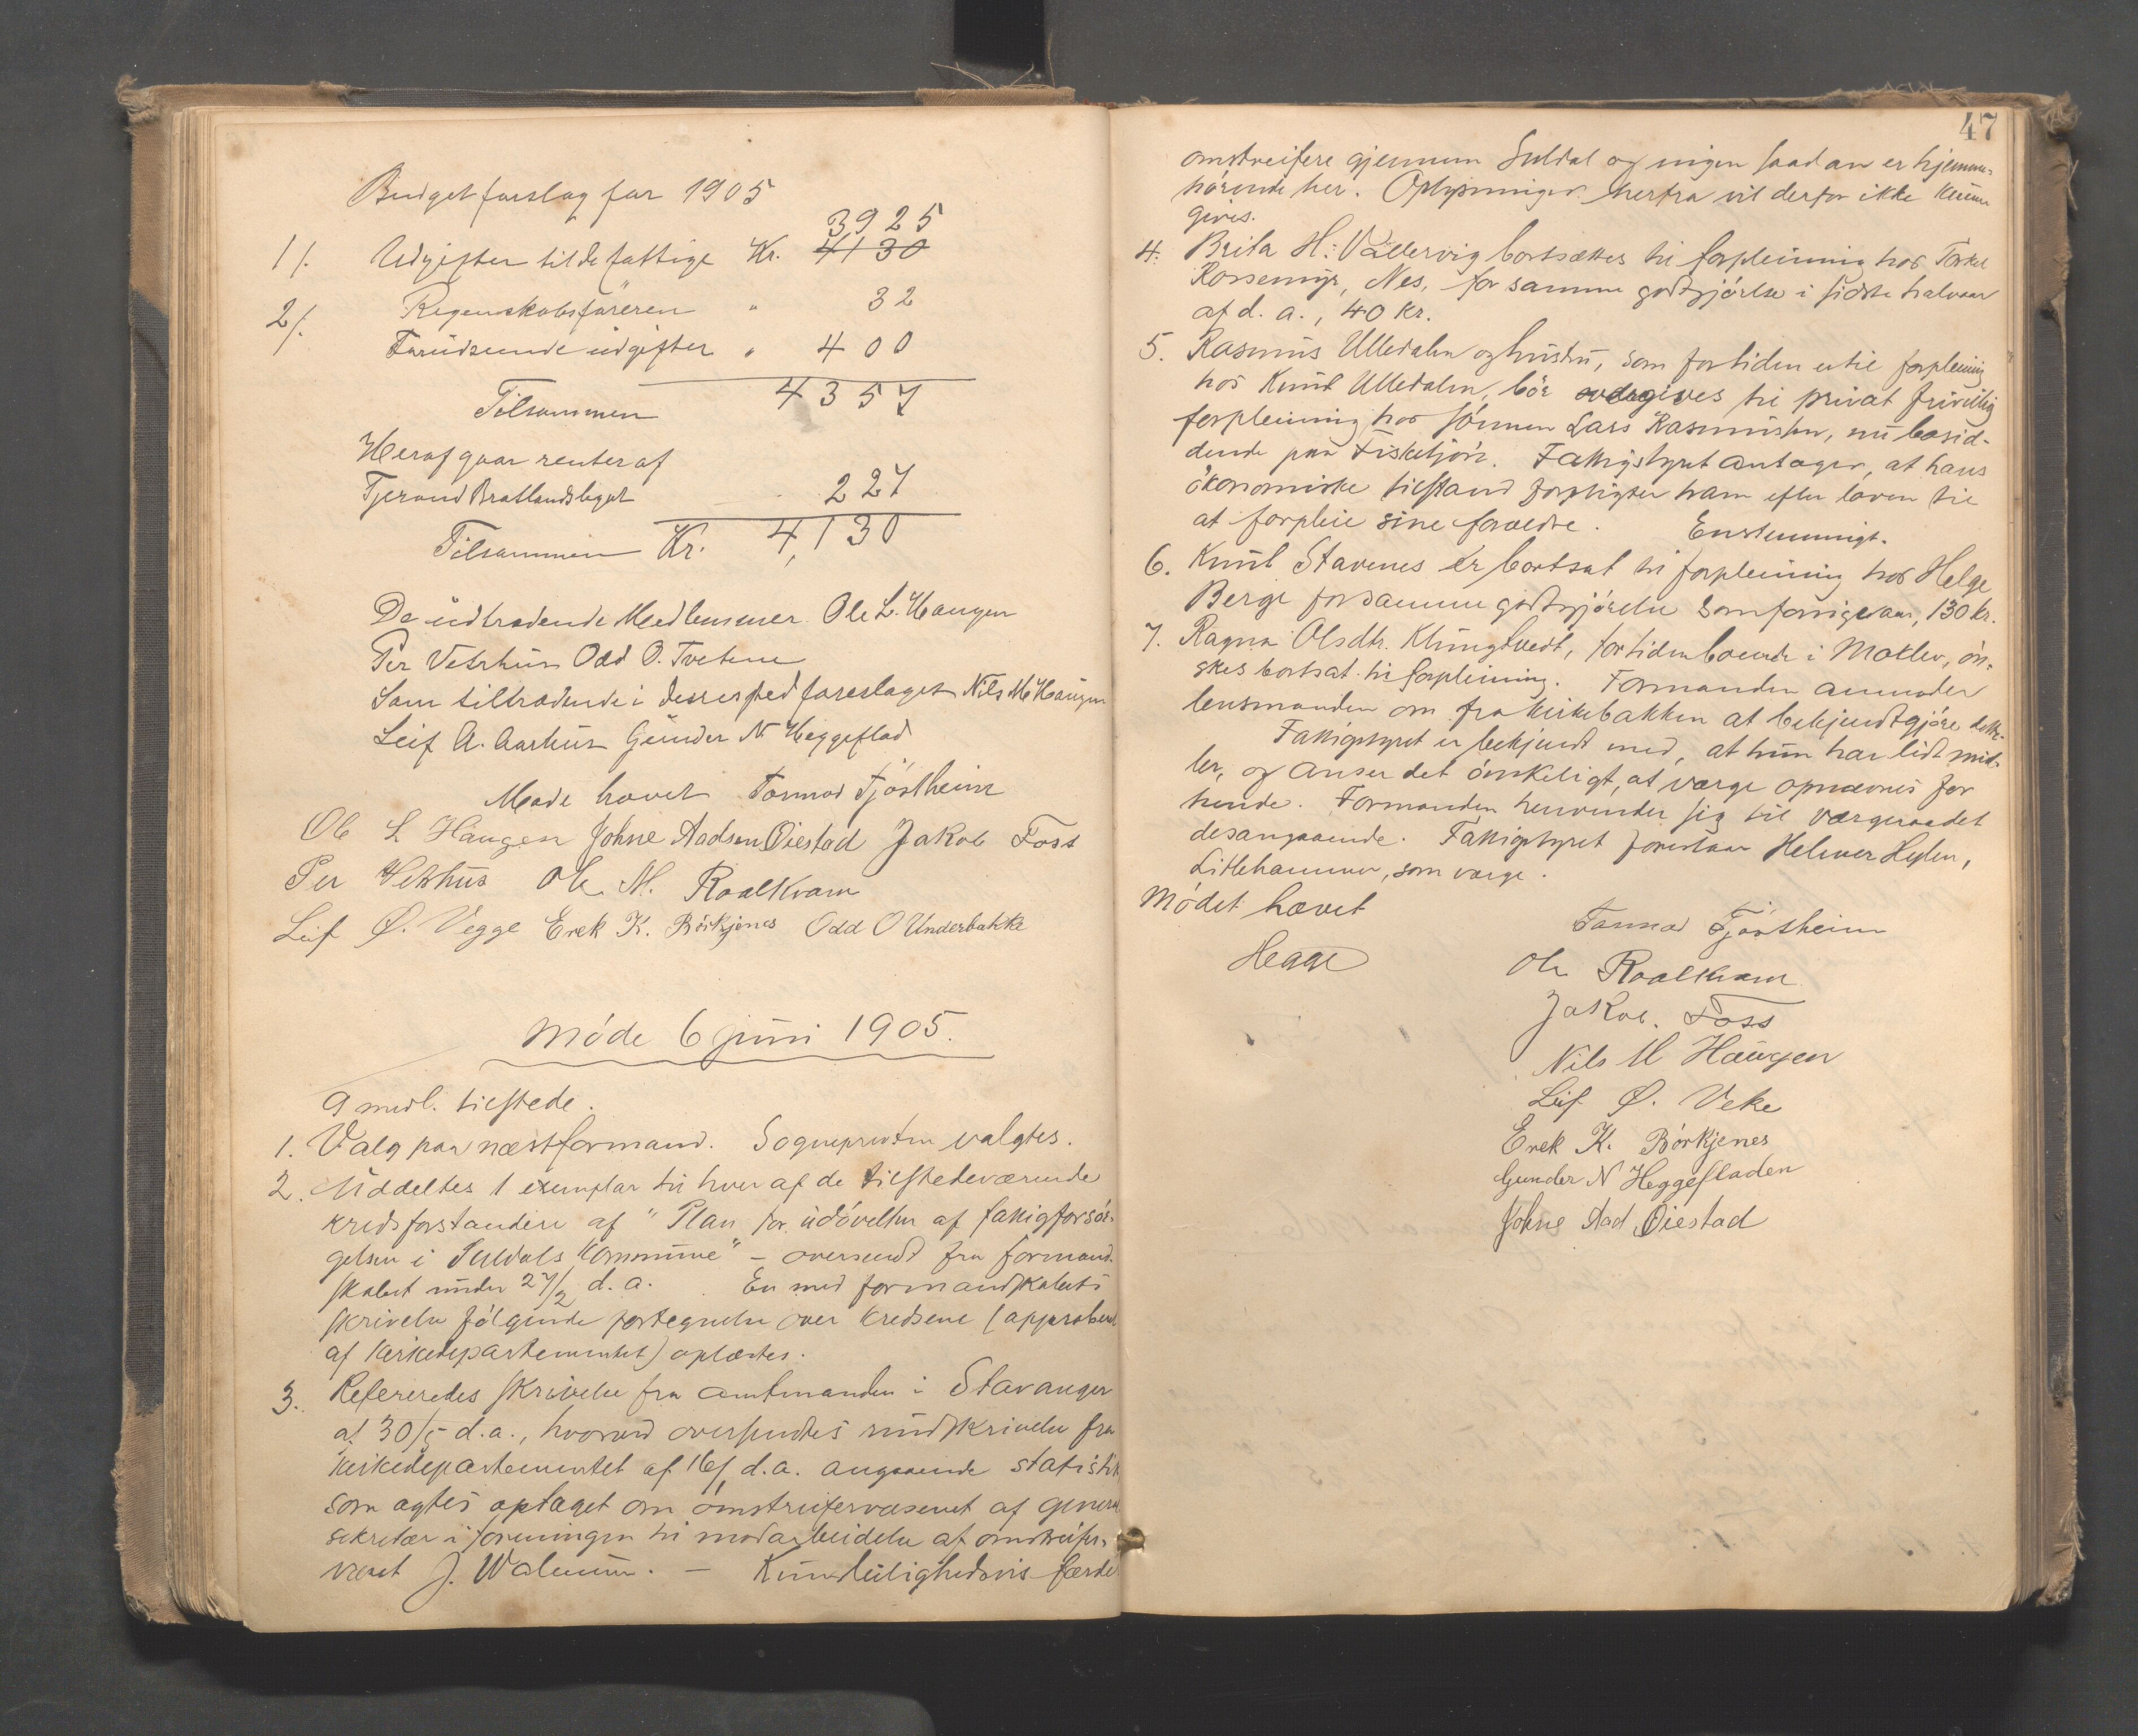 Budgetforslag for 1905
3925
1/. Udgifter til de fattige Kr. 4130
2/. Regnskabsføreren " 32
Forudseende udgifter " 400
Tilsammen 4357
Heraf gaar renter af
Tjerand Bratlandslegat 227
Tilsammen Kr. 4,130
De udtrædende Medlemmer Ole L. Haugen
Per Vetrhus Odd O. Tvetene
Som tiltrædende i deres sted foreslaget Nils M Haugen
Leif A. Aarhus Gunder N Heggeflad
Møde hævet Tormod Fjøstheim
Ole L Haugen Johne Aadsen Øiestad Jakob Foss
Per Vetrhus Ole M. Roalkvam
Leif Ø. Vegge Erek K. Børkjenes Odd O Underbakke
Møde 6 juni 1905.
9 medl. tilstede.
1. Valg paa næstformand. Sognepresten valgtes.
2. Uddeltes 1 exemplar til hver af de tilstedeværende
kredsforstandere af "Plan for udøvelsen af fattigforsør-
gelsen i Suldals kommune" – oversendt fra formand-
skabet under 27/2 d. a. En med formandskabets
skrivelse følgende fortegnelse over kredsene (approberet
af kirkedepartementet) oplæstes.
3. Refereredes skrivelse fra amtmanden i Stavanger
af 30/5 d. a., hvorved oversendtes rundskrivelse fra
kirkedepartementet af d. a. angaaende statistik
som agtes optaget om omstreifervæsenet af general
sekretær i foreningen til modarbeidelse af omstreifer-
væset J. Walnum. – Kun leilighedsvis færdes
47
omstreifere gjennem Suldal og ingen saadan er hjemme-
hørende her. Oplysninger herfra vil derfor ikke kunne
gives.
4. Brita H. Vadlervig bortsættes til forpleining hos Torkel
Rossemyr, Nes, for samme godtgjørelse i sidste halvaar
af d. a., 40 kr.
5. Rasmus Ulledalen og hustru, som for tiden er til forpleining
hos Knut Ulledalen, bør overgives til privat frivillig
forpleining hos sønnen Lars Rasmussen, nu bosid-
dende paa Fisketjøn. Fattigstyret antager, at hans
økonomiske tilstand forpligter ham efter loven til
at forpleie sine forældre. Enstemmigt.
6. Knut Stavenes er bortsat til forpleining hos Helge
Berge for samme godtgjørelse som forrige aar, 130 kr.
7. Ragna Olsdtr. Klungtvedt, for tiden boende i Moklev, øn-
skes bortsat til forpleining. Formanden anmoder
lensmanden om fra kirkebakken at bekjendtgjøre dette.
Fattigstyret er bekjendt med, at hun har lidt mid-
ler, og anser det ønskeligt, at værge opnævnes for
hende. Formanden henvender sig til værgeraadet
desangaaende. Fattigstyret foreslaar Helmer Hylen,
Litlehammer, som værge.
Mødet hævet
Tormod Fjøstheim
Hegge
Ole Roalkvam
Jakob. Foss
Nils M Haugen
Leif Ø. Veke
Erek K. Børkjenes
Gunder N Heggefladen
Johne Aad Øiestad